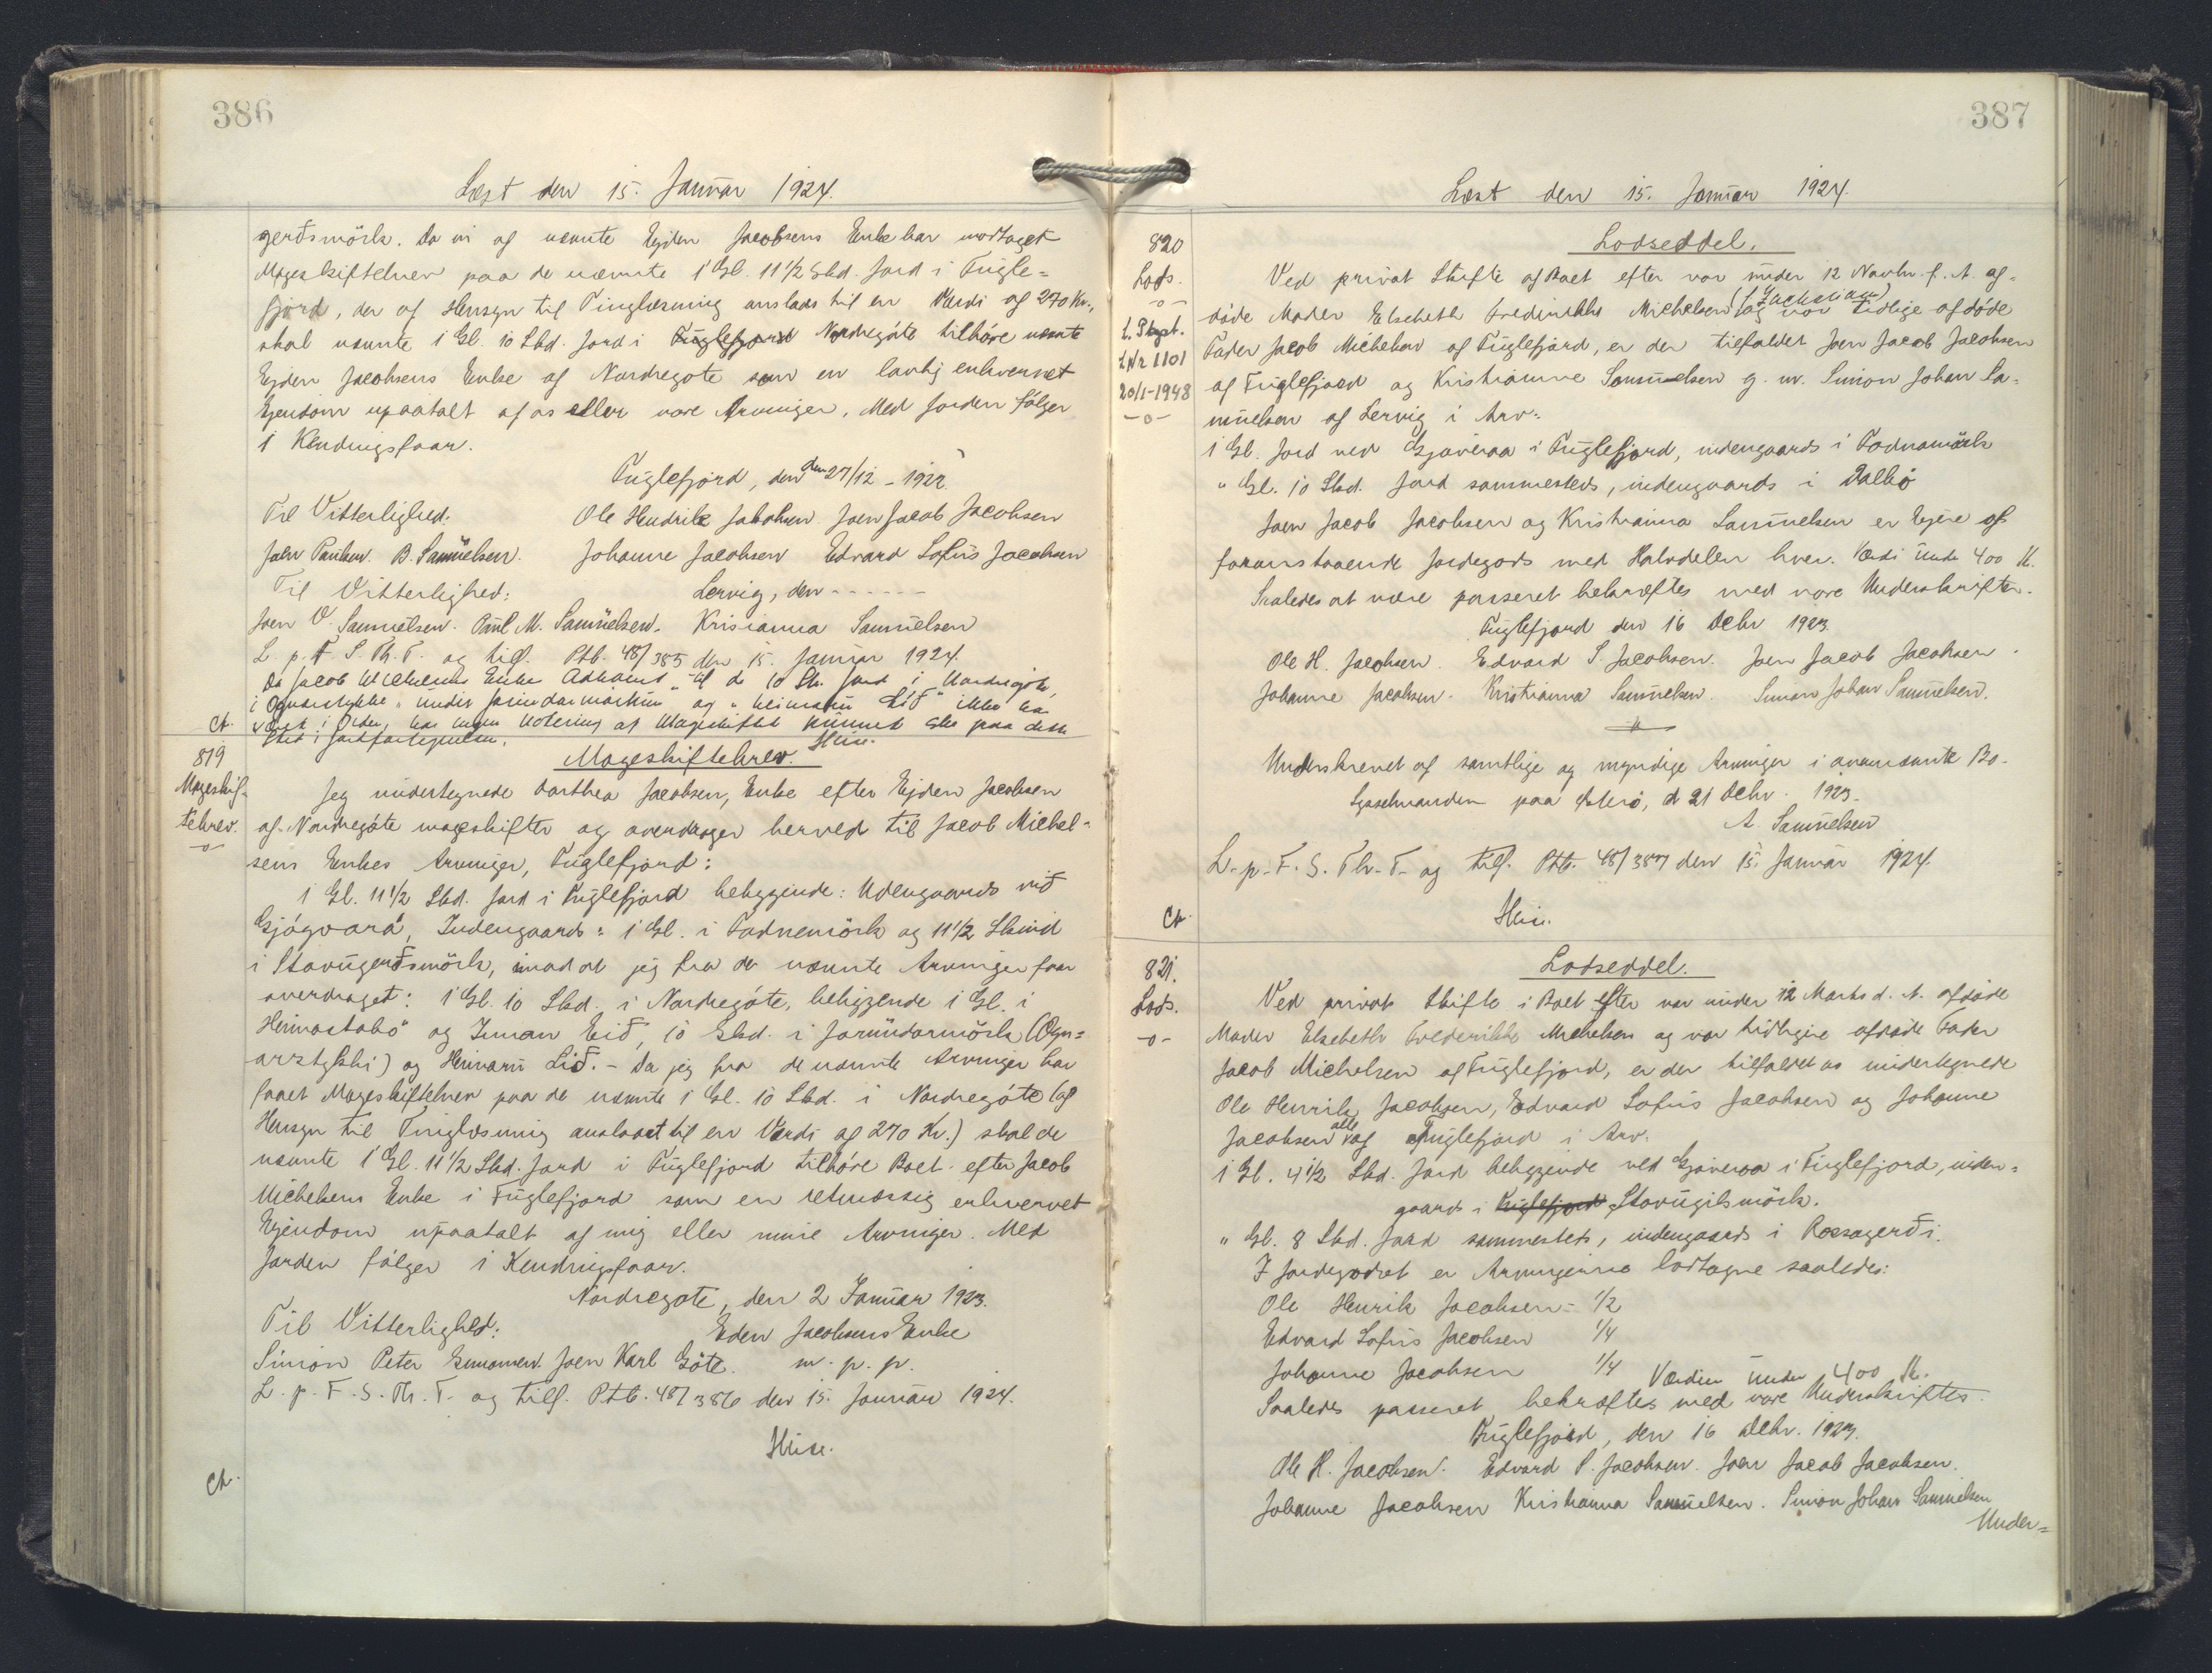 386
Læst den 15. Januar 1924.
gerðsmörk. Da vi af nævnte Ejden Jacobsens Enke har modtaget
Mageskiftebrev paa de nævnte 1 Gl. 11 1/2 Skd. Jord i Fugle=
fjord, der af Hensyn til Tinglæsning anslaas til en Værdi af 270 Kr.,
skal nævnte 1 Gl. 10 Skd. Jord i Fuglefjord Nordregóte tilhöre nævnte
Ejden Jacobsens Enke af Nordregote som en lovlig erhvervet
Ejendom upaatalt af os eller vore Arvinger. Med Jorden fölger
1 Kendingsfaar.
Fuglefjord, den 27/12 - 1922.
Til Vitterlighed:
Ole Hendrik Jakobsen Joen Jacob Jacobsen
Joen Poulsen. B. Samuelsen.
Johanne Jacobsen Edvard Sofus Jacobsen
Til Vitterlighed:
Lervig, den - - - - - -
Joen V. Samuelsen. Poul M. Samuelsen. Krisianna Samuelsen
L. p. F. S. Th. T. og tilf. Ptb. 48/385 den 15. Januar 1924.
Da Jacob Michelsens Enkes Adkomst til de 10 Sk. Jord i Nordregöte,
i Ognarstykke "under forundarmörkum" og "heimaru Lið" ikke har
været i Orden, har ingen Notering af Mageskiftet kunnet ske paa dette
Sted i Jordfortegnelsen.
Heise.
Ct.
819
Mageskif-
tebrev.
-o-
Mageskiftebrev.
Jeg undertegnede Dorthea Jacobsen, Enke efter Ejden Jacobsen
af Nordregóte mageskifter og overdrager herved til Jacob Michel=
sens Enkes Arvinger, Fuglefjord:
1 Gl. 11 1/2 Skd. Jord i Fuglefjord beliggende: Udengaards við
Gjógvará, Indengaards: 1 Gl. i Todnemörk og 11 1/2 Skind
i Stovugerðsmörk, imod at jeg fra de nævnte Arvinger faar
overdraget: 1 Gl. 10 Skd. i Nordregóte, beliggende 1 Gl. i
Heimastabö og Innan Eið, 10 Skd. i forundarmörk (Ogn=
arstykki) og Heimaru Lið. - Da jeg fra de nævnte Arvinger har
faaet Mageskiftebrev paa de nævnte 1 Gl. 10 Skd. i Nordregóte (af
Hensyn til Tinglæsning anslaaet til en Værdi af 270 Kr.) skal de
nævnte 1 Gl. 11 1/2 Skd. Jord i Fuglefjord tilhóre Boet efter Jacob
Michelsens Enke i Fuglefjord som en retmæssig erhvervet
Ejendom upaatalt af mig eller mine Arvinger. Med
Jorden fölger 1 Kendingsfaar.
Nordregote, den 2 Januar 1923.
Til Vitterlighed:
Eden Jacobsens Enke
Simon Peter Joen Karl Göte.
m. p. p.
L. p. F. S. Th. T. og tilf. Ptb. 48/386 den 15. Januar 1924.
Heise.
Ct.
387
Læst den 15. Januar 1924.
820
Lods.
-o-
L. Nr 1101
20/1-1948
-o-
Lodseddel.
Ved privat Skifte af Boet efter vor under 12 Novbr. f. A. af=
døde Moder Elsebeth Frederikke Michelsen (f. Zachsian) og vor tidlige afdöde
Fader Jacob Michelsen af Fuglefjord, er der tilfaldet Joen Jacob Jacobsen
af Fuglefjord og Kristianne Samuelsen g. m. Simon Johan Sa=
muelsen af Lervig i Arv:
1 Gl. Jord ved Gjoveraa i Fuglefjord, indengaards i Todnamörk
" Gl. 10 Skd. Jord sammesteds, indengaards i Dalbö
Joen Jacob Jacobsen og Kristianna Samuelsen er Ejere af
foranstaaende Jordegods med Halvdelen hver. Værdi under 400 K.
Saaledes at være passeret bekræftes med vore Underskrifter.
Fuglefjord den 16 Decbr 1923.
Ole H. Jacobsen. Edvard S. Jacobsen. Joen Jacob Jacobsen.
Johanne Jacobsen. Kristianna Samuelsen. Simon Johan Samuelsen.
Underskrevet af samtlige og myndige Arvinger i ovennævnte Bo.
Sysselmanden paa Österö, d 21 Decbr. 1923.
A. Samuelsen
L. p. F. S. Th. T. og tilf. Ptb. 48/387 den 15. Januar 1924.
Heise.
Ct.
821.
Lods.
-o-
Lodseddel.
Ved privat Skifte i Boet efter vor under 12 Marts d. A. afdøde
Moder Elsebeth Frederikke Michelsen og vor tidligere afdøde Fader
Jacob Michelsen af Fuglefjord, er der tilfaldet os undertegnede
Ole Henrik Jacobsen, Edvard Sofus Jacobsen og Johanne
Jacobsen alle af Fuglefjord i Arv:
1 Gl. 4 1/2 Skd. Jord beliggende ved Gjoveraa i Fuglefjord, inden=
gaards i Fuglefjord Stovugilsmörk.
" Gl. 8 Skd. Jord sammesteds, indengaards i Rossagerði.
I Jordegodset er Arvingerne lodtagne saaledes:
Ole Henrik Jacobsen - 1/2
Edvard Sofus Jacobsen 1/4
Johanne Jacobsen 1/4 Værdien under 400 K.
Saaledes passeret bekræftes med vore Underskrifter.
Fuglefjord, den 16 Decbr. 1923.
Ole H. Jacobsen. Edvard S. Jacobsen. Joen Jacob Jacobsen.
Johanne Jacobsen Kristianna Samuelsen. Simon Johan Samuelsen
Under=